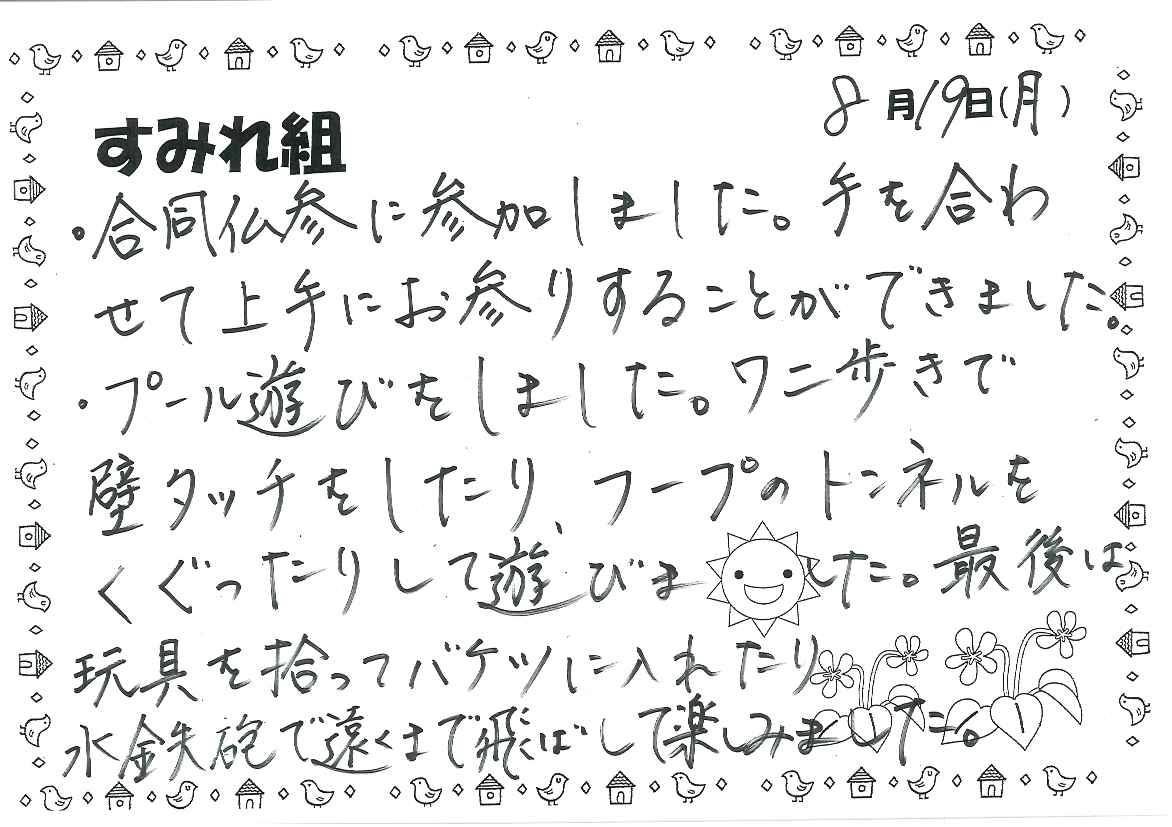 8月19日(月)
すみれ組
・合同仏参に参加しました。手を合わ
せて上手にお参りすることができました。
・プール遊びをしました。ワニ歩きで
壁タッチをしたり、フープのトンネルを
くぐったりして遊びました。最後は
玩具を拾ってバケツに入れたり
水鉄砲で遠くまで飛ばして楽しみました。